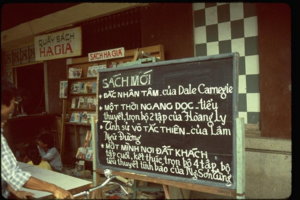 QUẦY SÁCH
HẠ GIA
SÁCH HẠ GIA
SÁCH MỚI
★ ĐẮC NHÂN TÂM..của Dale Carnegie
★ MỘT THỜI NGANG DỌC..tiểu
thuyết trọn bộ 2 tập của Hoàng Ly
★ Tình sử VÕ TẮC THIÊN..của Lâm
Ngũ Đường
★ MỘT MÌNH NƠI ĐẤT KHÁCH
tập cuối, kết thúc trọn bộ 4 tập, bộ
tiểu thuyết tình báo của Ng Sơn Tùng